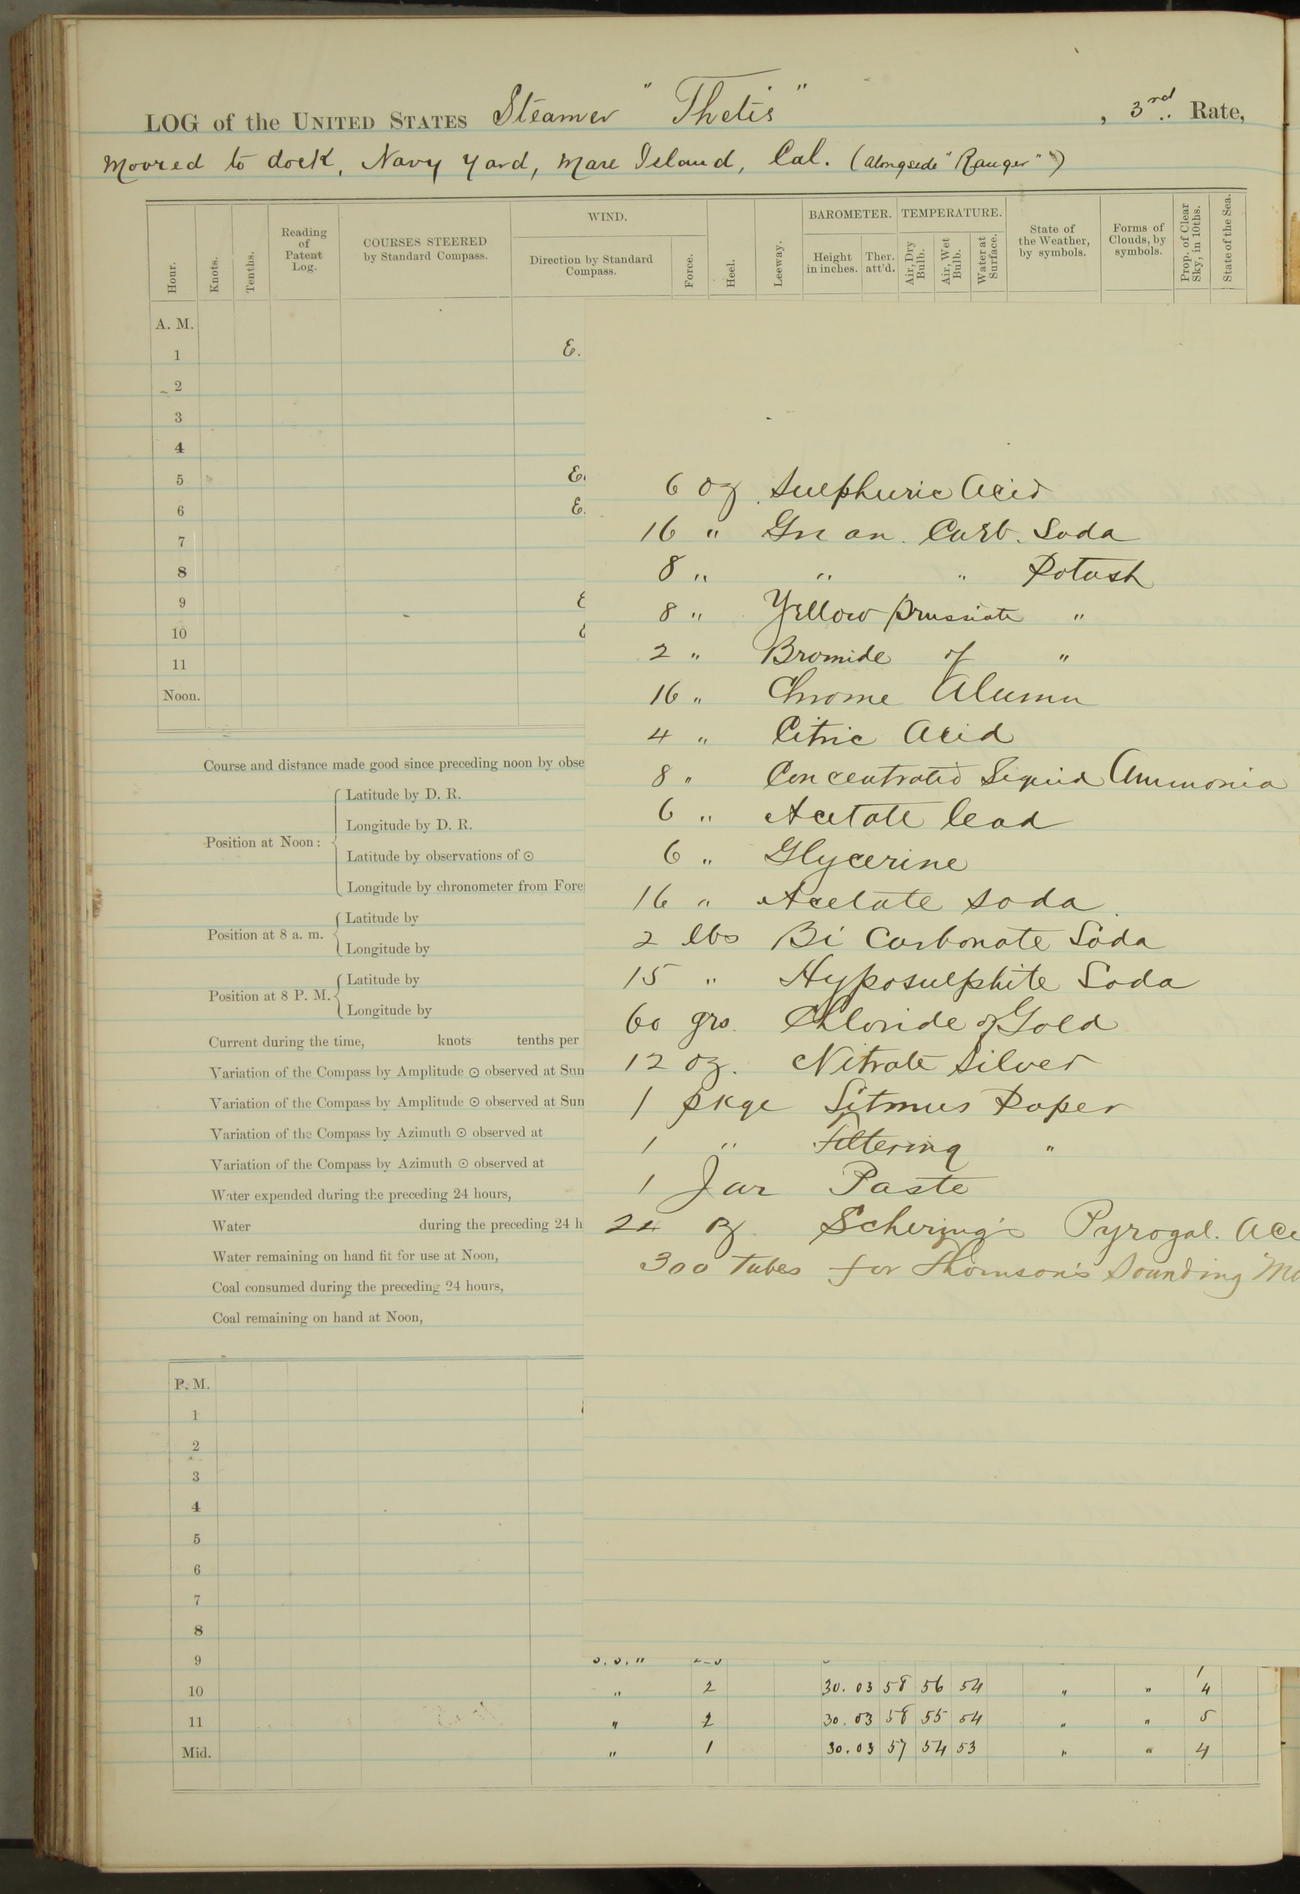 LOG of the UNITED STATES Steamer "Thetis", 3rd Rate,
Moored to dock, Navy Yard, Mare Island, Cal. (alongside "Ranger")
Hour. Knots. Tenths. Reading of Patent Log. COURSES STEERED by Standard Compass. WIND. Direction by Standard Compass. Force. Heel. Leeway. BAROMETER. Height in inches. Ther. att'd. TEMPERATURE. Air, Dry Bulb. Air, Wet Bulb. Water at Surface. State of the Weather, by symbols. Forms of Clouds, by symbols. Prop. of Clear Sky, in 10ths. State of the Sea.
A. M.
1 E.
2
3
4
5 E.
6 E.
7
8
9 E
10
11
Noon.
6 oz Sulphuric Acid
16 " an. Carb. Soda
8 " " " Potash
8 " Yellow Prussiate "
2 " Bromide of "
16 " Chrome Alumn
4 " Citric Acid
8 " Concentrated Liquid Ammonia
6 " Acetate lead
6 " Glycerine
16 " Acetate soda
2 lbs Bi Carbonate Soda
15 " Hyposulphite Soda
60 grs. Chloride of Gold
12 oz. Nitrate Silver
1 pkge Litmus Paper
1 " Filtering "
1 Jar Paste
24 oz Schering's Pyrogal. Aci
300 tubes for Thomson's Sounding Ma
Course and distance made good since preceding noon by obse
Position at Noon:
Latitude by D. R.
Longitude by D. R.
Latitude by observations of ⊙
Longitude by chronometer from Fore
Position at 8 a. m.
Latitude by
Longitude by
Position at 8 P. M.
Latitude by
Longitude by
Current during the time, knots tenths per
Variation of the Compass by Amplitude ⊙ observed at Sun
Variation of the Compass by Amplitude ⊙ observed at Sun
Variation of the Compass by Azimuth ⊙ observed at
Variation of the Compass by Azimuth ⊙ observed at
Water expended during the preceding 24 hours,
Water during the preceding 24 h
Water remaining on hand fit for use at Noon,
Coal consumed during the preceding 24 hours,
Coal remaining on hand at Noon,
P. M.
1
2
3
4
5
6
7
8
9
10 " 2 30.03 58 56 54 " " 4
11 " 2 30.03 58 55 54 " " 5
Mid. " 1 30.03 57 54 53 " " 4